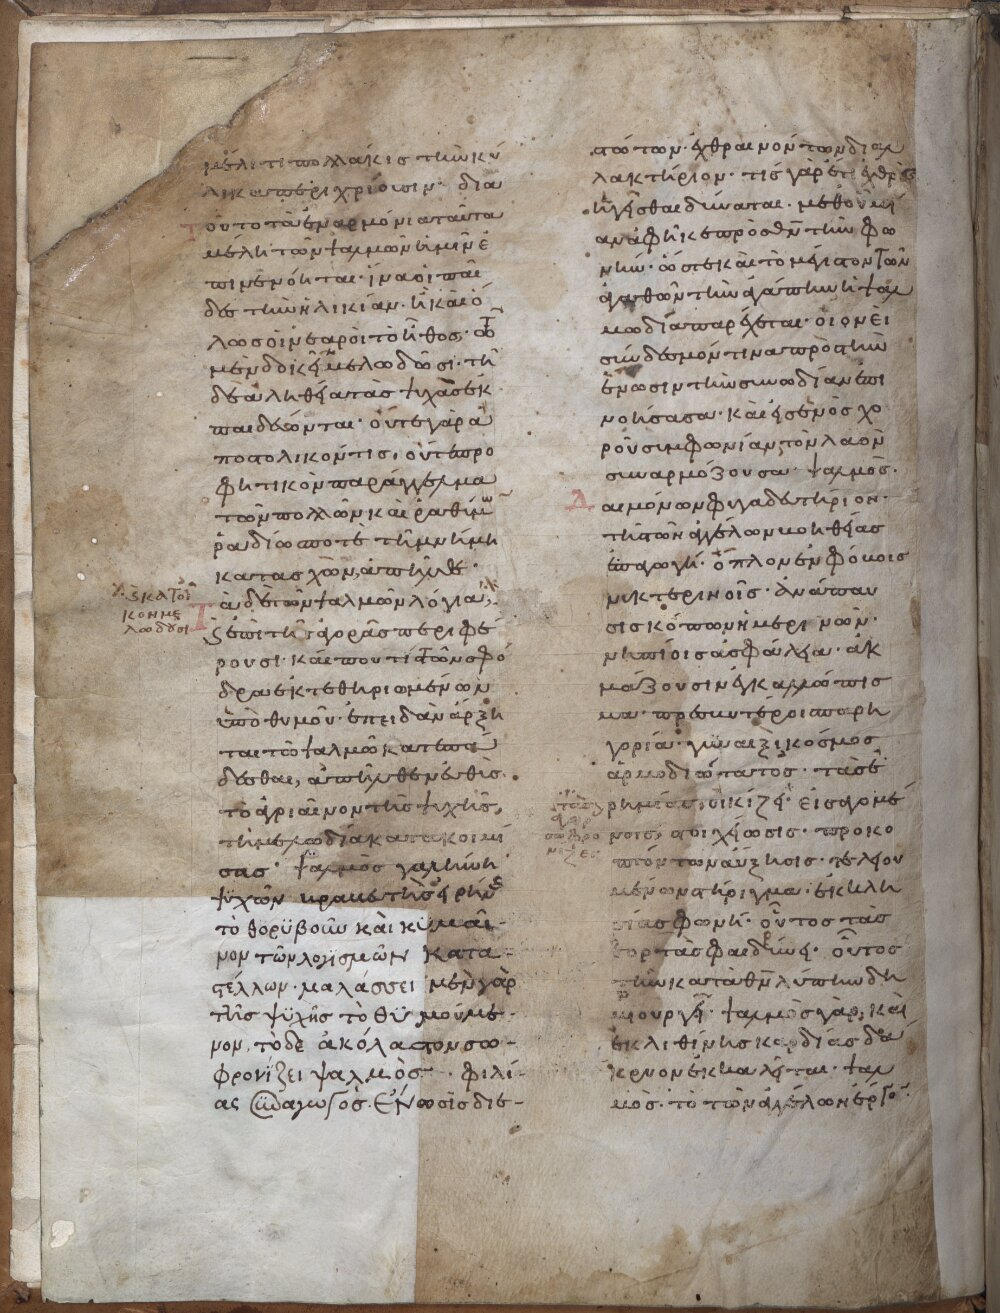 μέλιτι πολλάκις τὴν κύ
λικα περιχρίουσιν· δια
τοῦτο τὰ ἐναρμόνια ταῦτα
μέλη τῶν ψαλμῶν ἡμῖν ἐ
πινενόηται· ἵνα οἱ παῖ
δες τὴν ἡλικίαν· ἢ καὶ ὁ
λωσ οἱ νεαροὶ τὸ ἦθος· τῶ
μὲν δοκεῖν μελωδῶσι· τῆ
δὲ ἀληθεία τὰς ψυχὰς ἐκ
παιδεύονται· οὔτε γὰρ ἀ
ποστολικόν τις, οὔτε προ
φητικὸν παράγγελμα
τῶν πολλῶν καὶ ῥαθύμων
ῥαδίως ποτὲ τῆ μνήμη
κατασχὼν, ἀπῆλθε·
τὰ δὲ τῶν ψαλμῶν λόγια,
ϗ κατ' οἶ
κον με
λωδοῦσι
ϗ ἐπὶ τῆς ἀγορᾶς περιφέ
ρουσι· καὶ που τίς τῶν σφό
δρα ἐκτεθηριωμένων
ὑπὸ θυμοῦ· ἐπειδὰν ἄρξη
ται τῶ ψαλμῶ κατεπά
δεσθαι, ἀπῆλθεν εὐθὺς·
τὸ ἀγριαῖνον τῆς ψυχῆς,
τῆ μελωδία κατακοιμί
σας· ψαλμὸς γαλήνη
ψυχῶν βραβευτὴς εἰρήνης
τὸ θορϋβοῦν καὶ κϋμαῖ-
νον τῶν λογϊσμῶν κατα-
στέλλων· μαλάσσει μὲν γὰρ
τῆς ψϋχῆς τὸ θϋμούμε-
νον, τὸ δὲ ἀκόλαστον σω-
φρονίζει ψαλμὸς· φιλί-
ας συναγωγὸς· ἕνωσις διε-
στώτων· ἐχθραινόντων διαλ
λακτήριον· τίς γὰρ ἔτι ἐχθρὸς
ἡγεῖσθαι δύναται· μεθ' οὗ μί
αν ἀφῆκε πρὸς θν τὴν φω
νήν· ὥστε καὶ τὸ μέγιστον τῶν
ἀγαθῶν τὴν ἀγάπην ἡ ψαλ
μωδία παρέχεται· οἱονεὶ
σύνδεσμόν τινα πρὸς τὴν
ἕνωσιν τὴν συνωδίαν ἐπι
νοήσασα· καὶ εἰς ἑνὸς χο
ροῦ συμφωνίαν τὸν λαὸν
συναρμόζουσα· ψαλμὸς·
Δαιμόνων φυγαδευτήριον·
τῆς τῶν ἀγγέλων βοηθείας
ἐπαγωγή· ὅπλον ἐν φόβοις
νυκτερινοῖς· ἀνάπαυ
σις κόπων ἡμερινῶν·
νηπίοις ἀσφάλεια· ἀκ
μάζουσιν ἐγκαλλώπισ
μα· πρεσβυτέροις παρη
γορία· γυναιξὶ κόσμος
ἁρμοδιώτατος· τὰς ἐ
ρημίας οἰκίζει· εἰσαγομέ
νοις, στοιχείωσις· προκο
πτόντων αὔξησις· τελειου
μένων στήριγμα· ἐκκλη
σίας φωνή· οὗτος τὰς
ἑορτὰς φαιδρύνει· οὗτος
τὴν κατὰ θν λύπην δη
μιουργεῖ· ψαλμὸς γὰρ, καὶ
ἐκ λιθίνης καρδίας δά
κρυον ἐκκαλεῖται· ψαλ
μὸς· τὸ τῶν ἀγγέλων ἔργον·